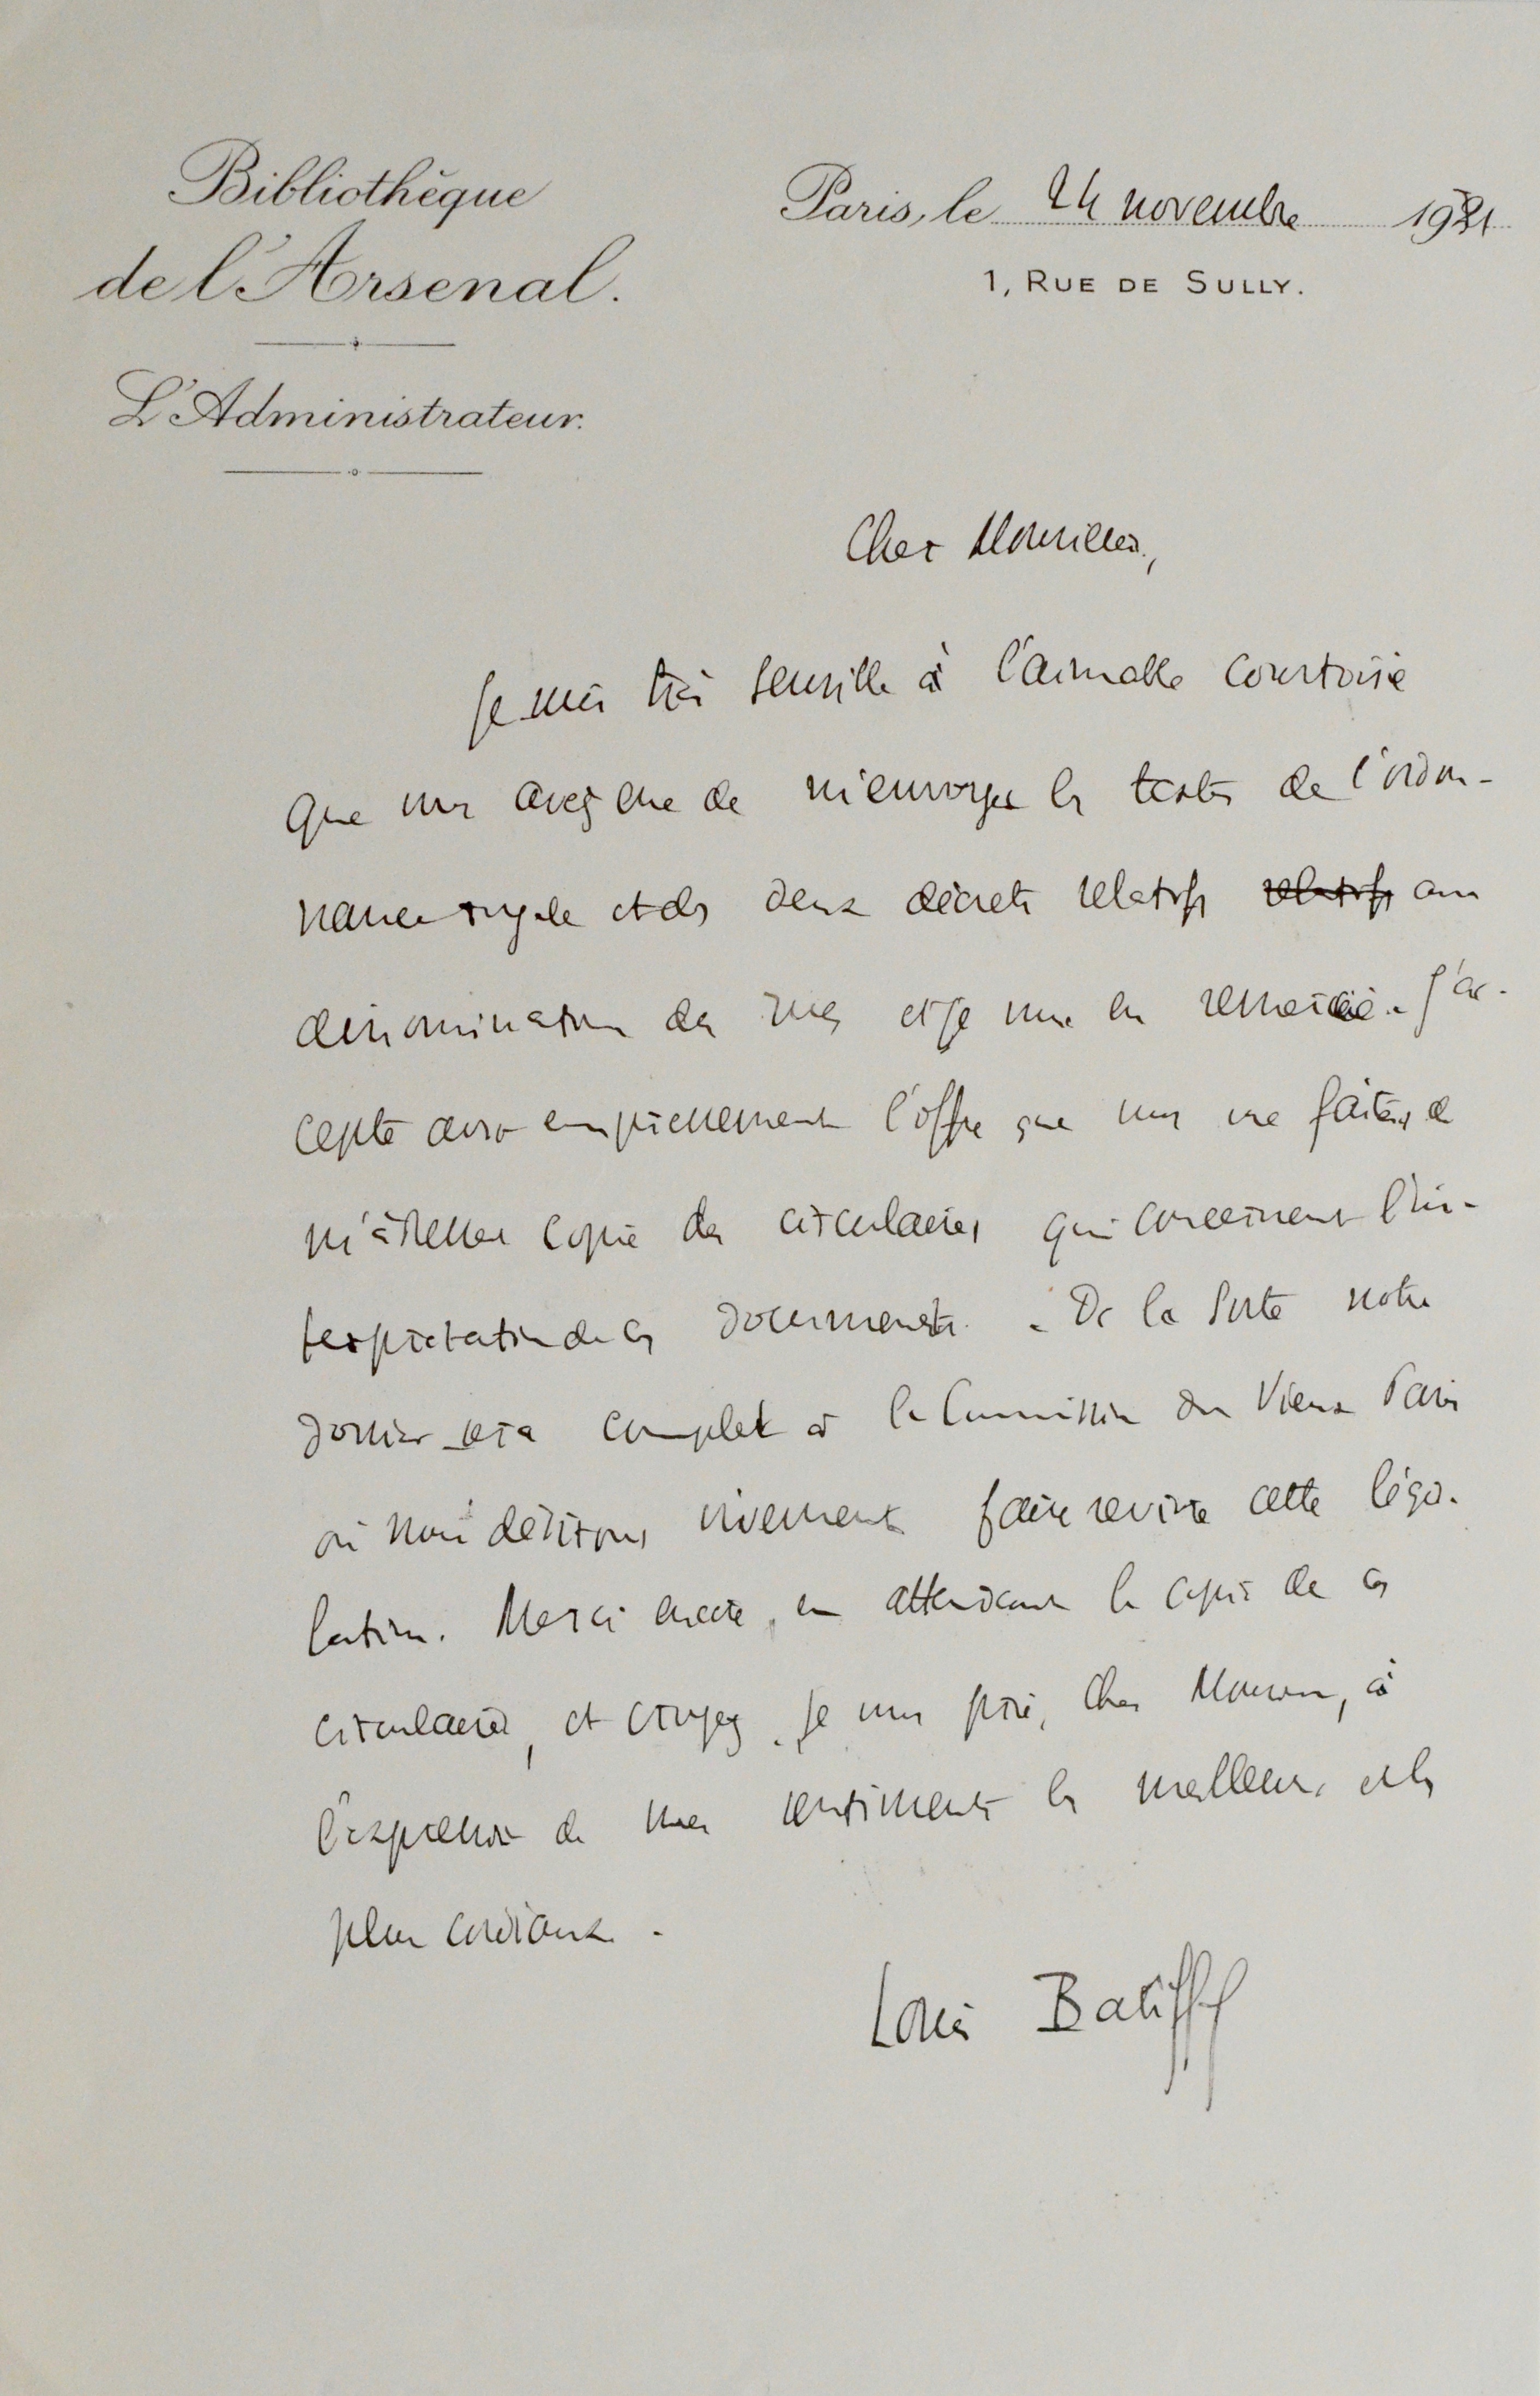 Bibliothèque
de l'Arsenal.
L'Administrateur.
Paris, le 24 novembre 1931
1, RUE DE SULLY.
Cher Monsieur,
Je suis très sensible à l'aimable courtoisie
que vous avez eue de m'envoyer les textes de l'ordon-
nance royale et des deux décrets relatifs relatifs aux
dénominations des rues et je vous en remercie. J'ac-
cepte avec empressement l'offre que vous me faites de
m'adresser copie des circulaires qui concernent l'in-
terprétation de ces documents. De la sorte notre
dossier sera complet à la Commission du Vieux Paris
où nous désirons vivement faire revivre cette légis-
lation. Merci encore, en attendant la copie de ces
circulaires, et croyez, je vous prie, cher Monsieur, à
l'expression de mes sentiments les meilleurs et les
plus cordiaux.
Louis Batiffol